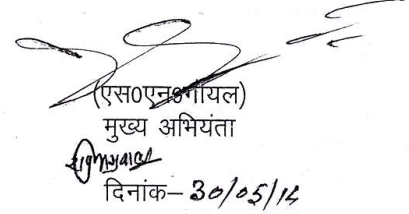 (एस0एन0गोयल)
मुख्य अभियंता
दिनांक– 30/05/14